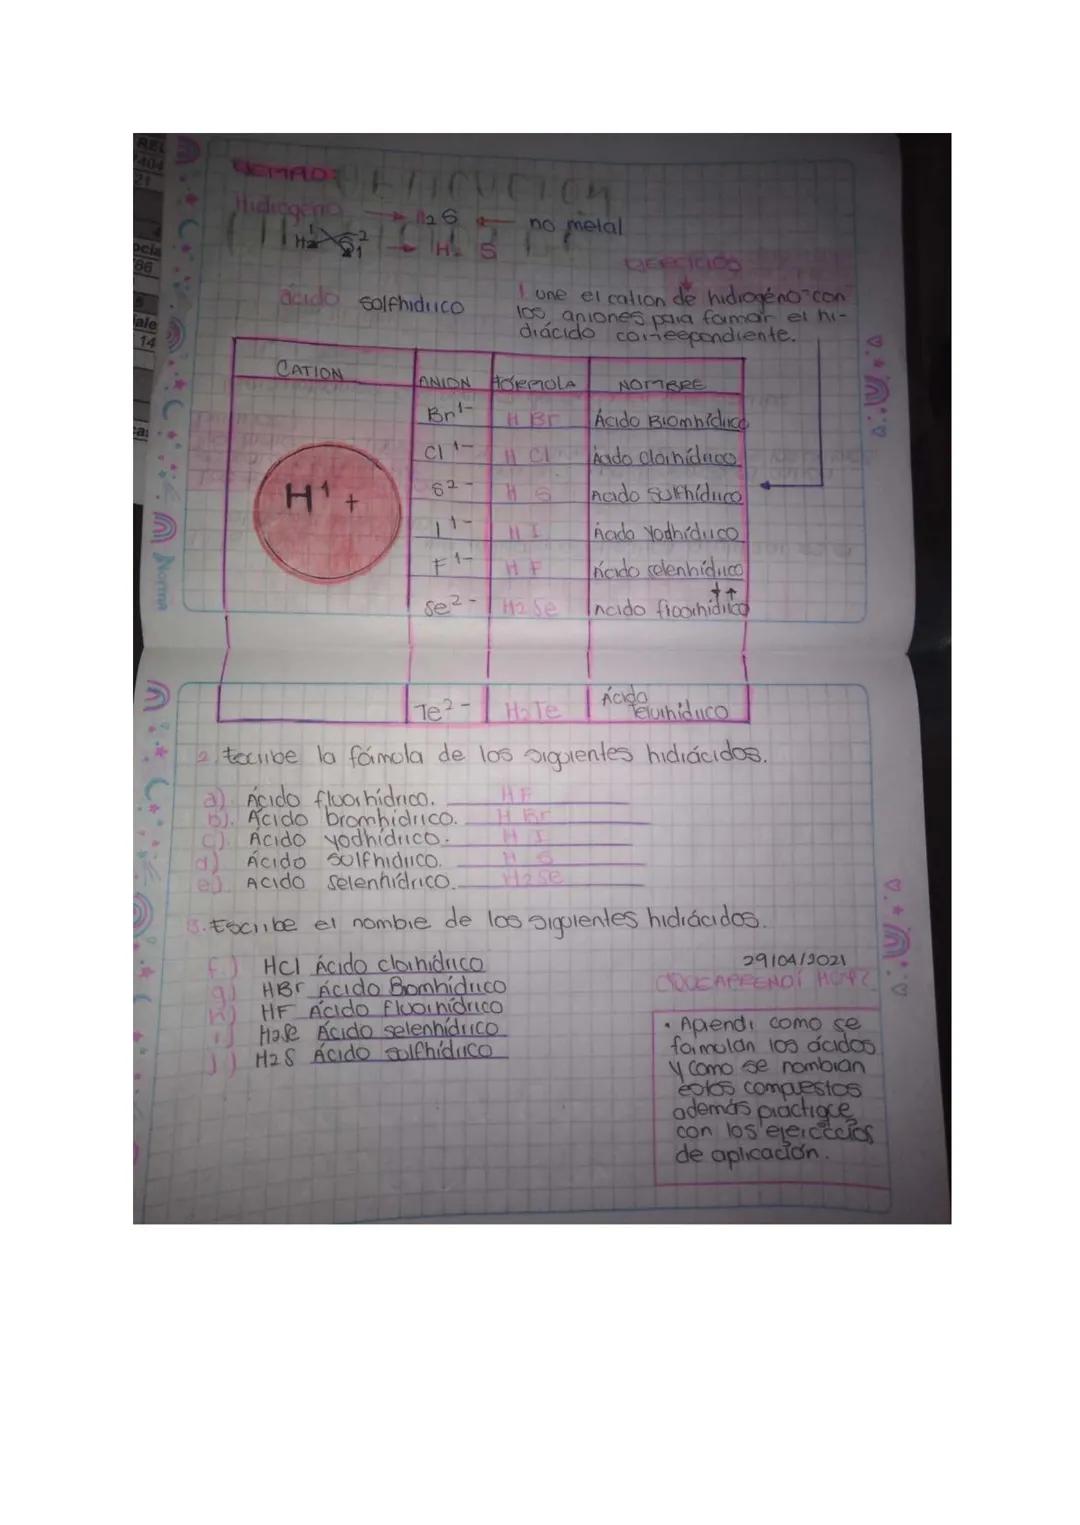 EJEMPLO:
Hidrogeno → H2 S ← no metal
H2 S → H2 S
ácido sulfhidrico
EJERCICIOS
1 une el cation de hidrogéno con
los aniones para formar el hi-
drácido correspondiente.
CATION ANION FÓRMULA NOMBRE
H1+
Br1- H Br Ácido Bromhídrico
Cl1- H Cl Ácido clorhídrico
S2- H S Acido sulfhídrico
I1- H I Ácido yodhídrico
F1- H F Ácido selenhídrico
Se2- H2 Se Acido fluorhidrico
Te2- H2Te Ácido
Telurhídrico
2. Escribe la fórmula de los siguientes hidrácidos.
a). Ácido fluorhídrico. HF
b). Ácido bromhidrico. H Br
c). Ácido yodhídrico. H I
d) Ácido sulfhidrico. H S
e) Acido selenhídrico. H2Se
3. Escribe el nombre de los siguientes hidrácidos.
f.) HCl Ácido clorhidrico
g) HBr Ácido Bromhidrico
h) HF Ácido fluorhídrico
i) H2Se Ácido selenhídrico
j) H2S Ácido sulfhídrico
29/04/2021
¿QUE APRENDÍ HOY?
• Aprendi como se
formulan los ácidos
y como se nombran
estos compuestos
además practique
con los ejerccicios
de aplicación.
Norma